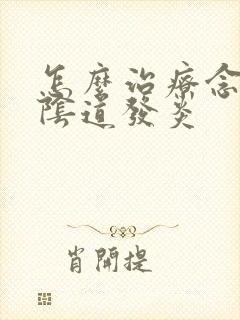 怎麼治療念
陰道發炎
肖開提